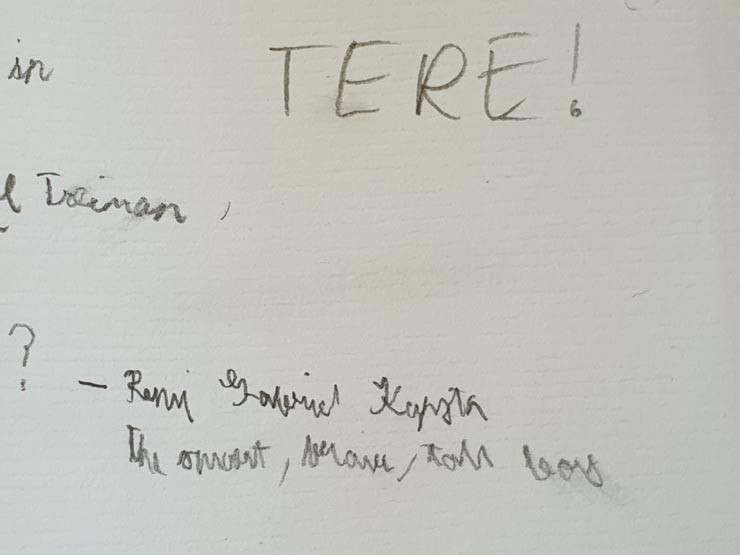 in
TERE!
Traian,
?
- Remi Gabriel Kapsta
The smart, brave, tall boy